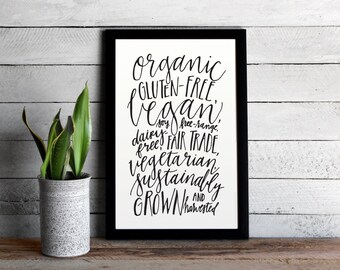 organic
GLUTEN-FREE
vegan,
soy free-range
dairy
free FAIR TRADE
vegetarian
sustainably
GROWN AND
harvested